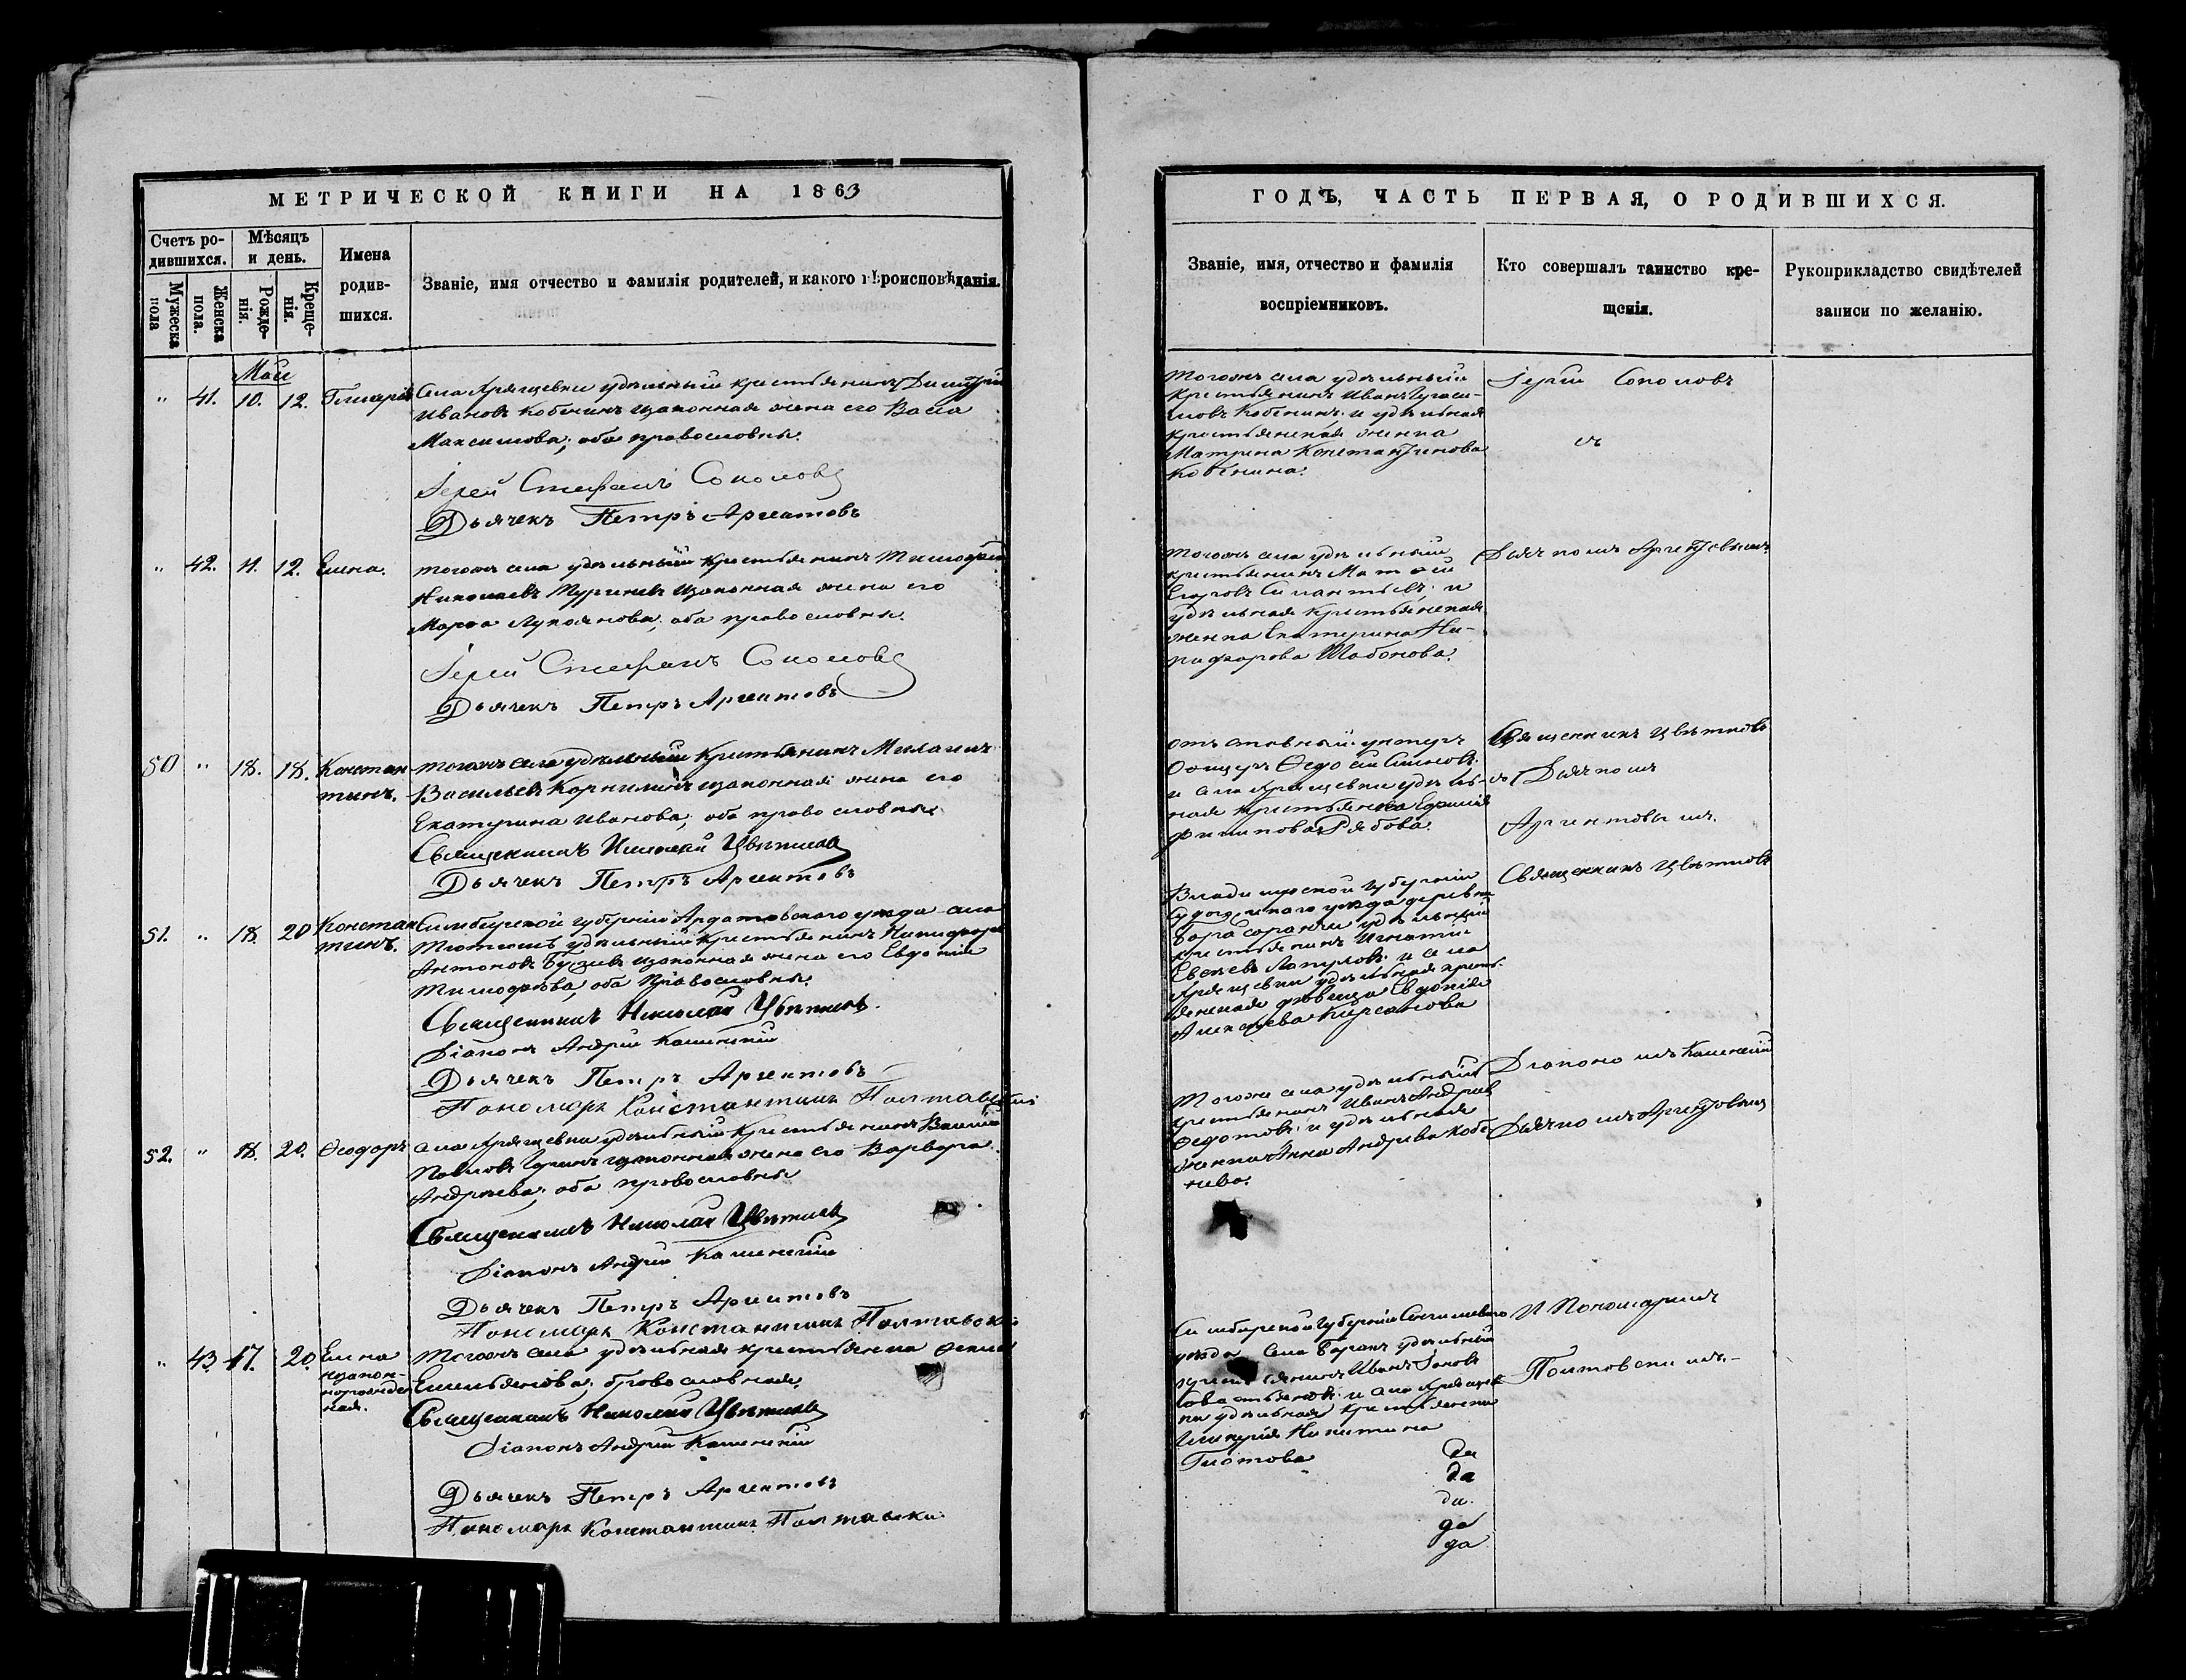 МЕТРИЧЕСКОЙ КНИГИ НА 1863
Счетъ ро-
дившихся.
Мѣсяцъ
и день.
Имена
родив-
шихся.
Званіе, имя отчество и фамилія родителей, и какого вѣроисповѣданія.
Мужеска
пола
Женска
пола.
Рожде-
нія.
Креще-
нія.
Май
" 41. 10. 12. Гликерія Села Хрящевки удѣльный крестьянинъ Димитрій
Ивановъ Кобенинъ изаконная жена его Васса
Максимова; оба православны.
Іерей Стефанъ Соколовъ
Дьячекъ Петръ Аргентовъ
" 42. 11. 12. Елена. тогожъ села удѣльный крестьянинъ Тимофей
Николаевъ изаконная жена его
Марѳа Лукоянова; оба православны.
Іерей Стефанъ Соколовъ
Дьячекъ Петръ Аргентовъ
50 " 18. 18. Констан-
тинъ.
тогожъ села удѣльный крестьянинъ
Васильевъ Корнилинъ изаконная жена его
Екатерина Иванова; оба православны
Священникъ Николай Цвѣтковъ
Дьячекъ Петръ Аргентовъ
51. " 18. 20 Констан
тинъ.
Симбирской губерніи Ардатовскаго уезда села
удѣльный крестьянинъ Никифоръ
Антоновъ изаконная жена его Евдокія
Тимофѣева, оба православны.
Священникъ Николай Цвѣтковъ.
Діаконъ Андрей Каменскій
Дьячекъ Петръ Аргентовъ
Пономарь Константинъ Полтавскій
52. " 18. 20. Ѳеодоръ села Хрящевки удѣльный крестьянинъ Василій
Павловъ изаконная жена его Варвара
Андреева; оба православны
Священникъ Николай Цвѣтковъ
Діаконъ Андрей Каменскій
Дьячекъ Петръ Аргентовъ
Пономарь Константинъ Полтавскій
" 43. 17. 20. Елена
незакон-
норожден
ная.
Тогожъ села удѣльная крестьянка
Емельянова; православная.
Священникъ Николай Цвѣтковъ
Діаконъ Андрей Каменскій
Дьячекъ Петръ Аргентовъ
Пономарь Константинъ Полтавски
ГОДЪ, ЧАСТЬ ПЕРВАЯ, О РОДИВШИХСЯ.
Званіе, имя, отчество и фамилія
воспріемниковъ.
Кто совершалъ таинство кре-
щенія.
Рукоприкладство свидѣтелей
записи по желанію.
тогожъ села удѣльный
крестьянинъ Иванъ Гераси-
мовъ Кобенинъ; и удѣльная
крестьянская женка
Матрена Константинова
Кобенина.
Іерей Соколовъ
съ
тогожъ села удѣльный
крестьянинъ
Егоровъ; и
удѣльная крестьянская
женка Екатерина Ни-
кифорова Шабонова.
Дьячкомъ Аргентовымъ
отъ ставный унтеръ
и села Хрящевки удѣль-
ная крестьянка
Филипова Рябова.
Священникъ Цвѣтковъ
съ Дьячкомъ
Аргентовымъ.
Владимирской губерніи
уезда деревни
удѣльный
крестьянинъ Игнатій
и села
Хрящевки удѣльная кресть-
янская дѣвица Евдокія
Алексѣева Кирсанова
Священникъ Цвѣтковъ
Тогожъ села удѣльный
крестьянинъ Иванъ Андреевъ
Ѳедотовъ; и удѣльная
женка Анна Андреева Кобе
нина.
Діакономъ Каменскимъ
Дьячкомъ Аргентовымъ
Симбирской губерніи Сенгилевскаго
уезда села удѣльный
Иванъ
и села Хрящев
ки удѣльная крестьянска
Гликерія Никитина
Глотова
И Пономаремъ
Полтовскимъ.
да
да
да.
да
да